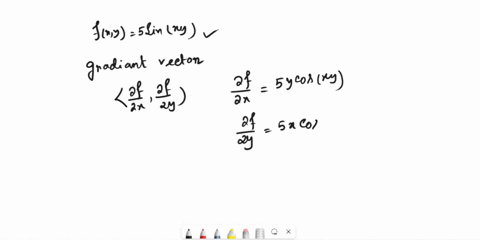 f(x,y) = 5 sin(xy) ✓
gradiant vector
⟨∂f/∂x, ∂f/∂y⟩
∂f/∂x = 5y cos(xy)
∂f/∂y = 5x cos